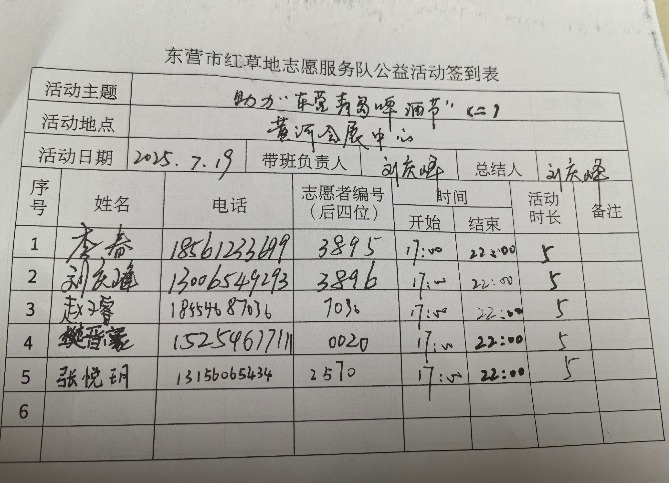 东营市红草地志愿服务队公益活动签到表
活动主题 助力"东营青岛啤酒节"(二)
活动地点 黄河会展中心
活动日期 2025.7.19 带班负责人 刘庆峰 总结人 刘庆峰
序号 姓名 电话 志愿者编号（后四位） 时间 开始 结束 活动时长 备注
1 李春 18561233699 3895 17:00 22:00 5
2 刘庆峰 13006549293 3896 17:00 22:00 5
3 赵子睿 18554687036 7036 17:00 22:00 5
4 樊晋豪 15254617711 0020 17:00 22:00 5
5 张悦玥 13156065434 2570 17:00 22:00 5
6